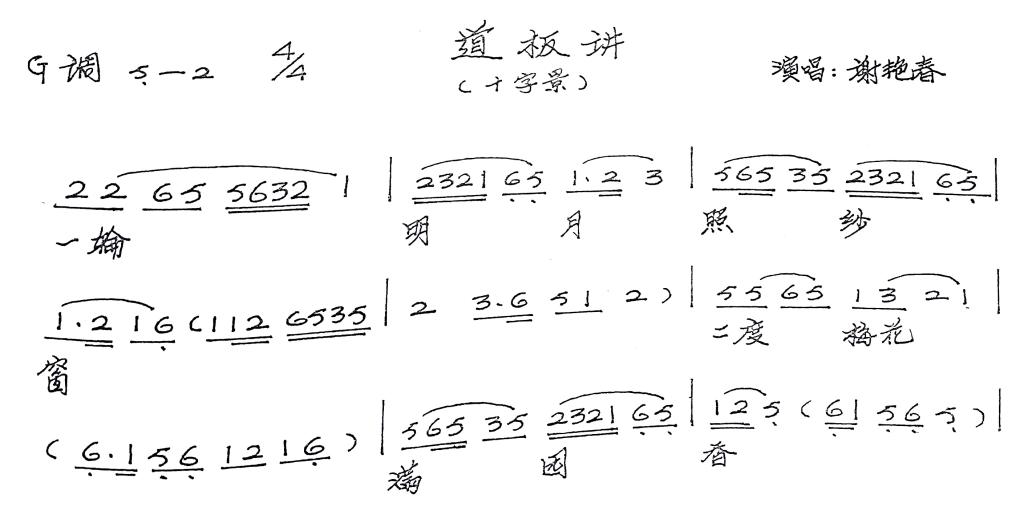 道板讲
G调 5—2 4/4
(十字景)
演唱：谢艳春
2 2 65 5632 1 | 2321 65 1.2 3 | 565 35 2321 65 |
一轮 明 月 照 纱
1.2 16 (112 6535 | 2 3.6 51 2) | 55 65 13 21 |
窗 二度 梅花
(6.1 56 12 16) | 565 35 2321 65 | 12 5 (61 56 5) |
满 园 香